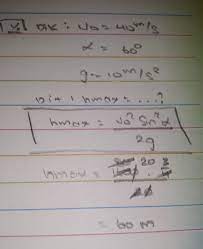 Dik : Vo = 40 m/s
α = 60°
g = 10 m/s²
Dit : hmax = ...?
hmax = Vo² Sin²α / 2g
hmax =
= 60 m